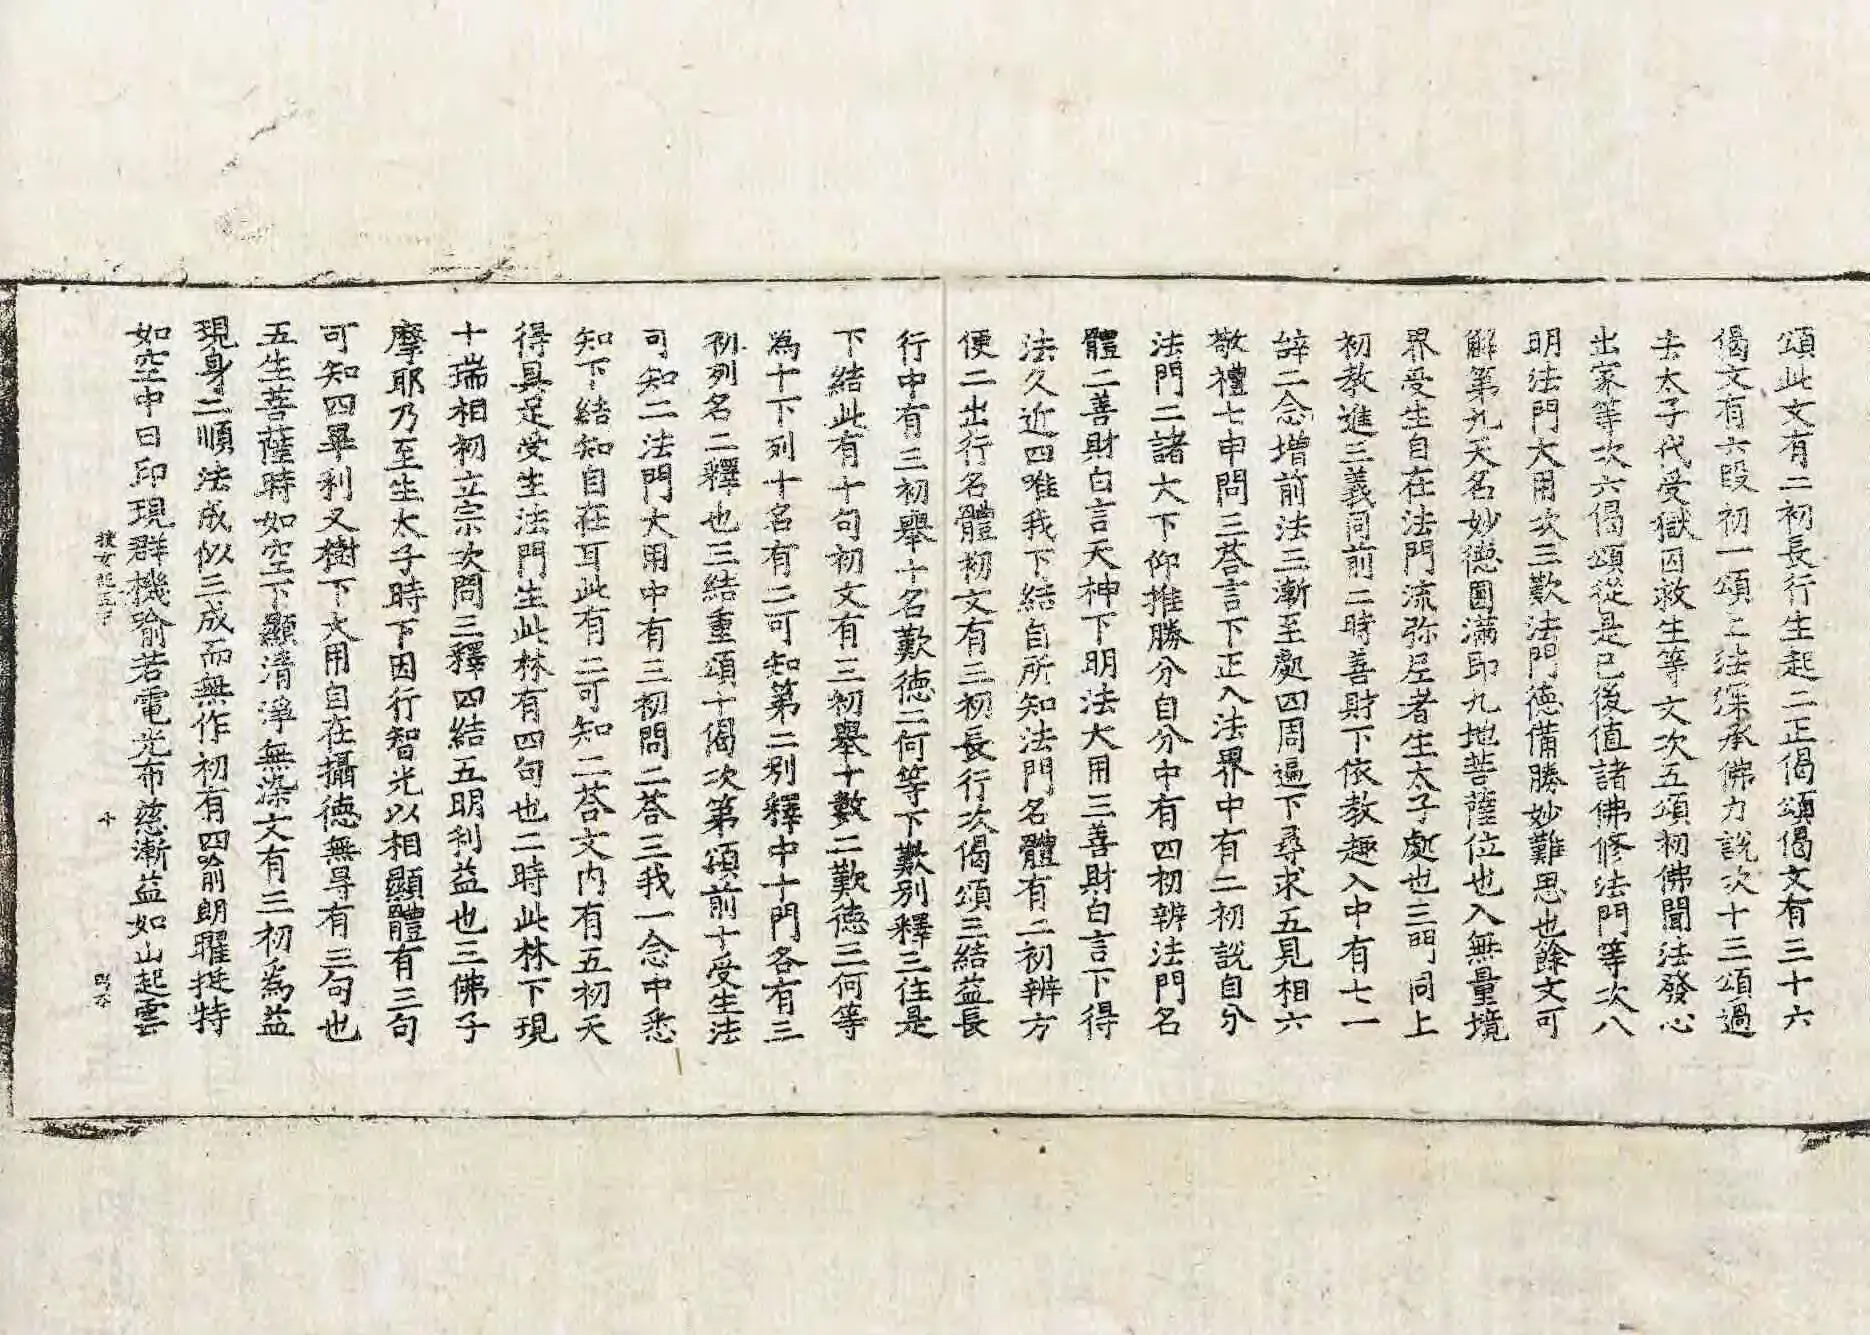 頌此文有二初長行生起二正偈頌偈文有三十六
偈文有六段初一頌上法深承佛力說次十三頌過
去太子代受獄囚救生等文次五頌初佛聞法發心
出家等次六偈頌從是已後值諸佛修法門等次八
明法門大用次三歎法門德備勝妙難思也餘文可
解第九天名妙德圓滿即九地菩薩位也入無量境
界受生自在法門流弥尼者生太子處也三門同上
初教進三義同前二時善財下依教趣入中有七一
辞二念增前法三漸至處四周遍下尋求五見相六
敬禮七申問三荅言下正入法界中有二初說自分
法門二諸大下仰推勝分自分中有四初辨法門名
體二善財白言天神下明法大用三善財白言下得
法久近四唯我下結自所知法門名體有二初辨方
便二出行名體初文有三初長行次偈頌三結益長
行中有三初舉十名歎德二何等下歎別釋三住是
下結此有十句初文有三初舉十數二歎德三何等
為十下列十名有二可知第二別釋中十門各有三
初列名二釋也三結重頌十偈次第頌前十受生法
可知二法門大用中有三初問二荅三我一念中悉
知下結知自在耳此有二可知二荅文内有五初天
得具足受生法門生此林有四句也二時此林下現
十瑞相初立宗次問三釋四結五明利益也三佛子
摩耶乃至生太子時下因行智光以相顯體有三句
可知四畢利叉樹下大用自在攝德無㝵有三句也
五生菩薩時如空下顯清淨無染文有三初為益
現身二順法成似三成而無作初有四喻朗曜挺特
如空中日印現群機喻若電光布慈漸益如山起雲